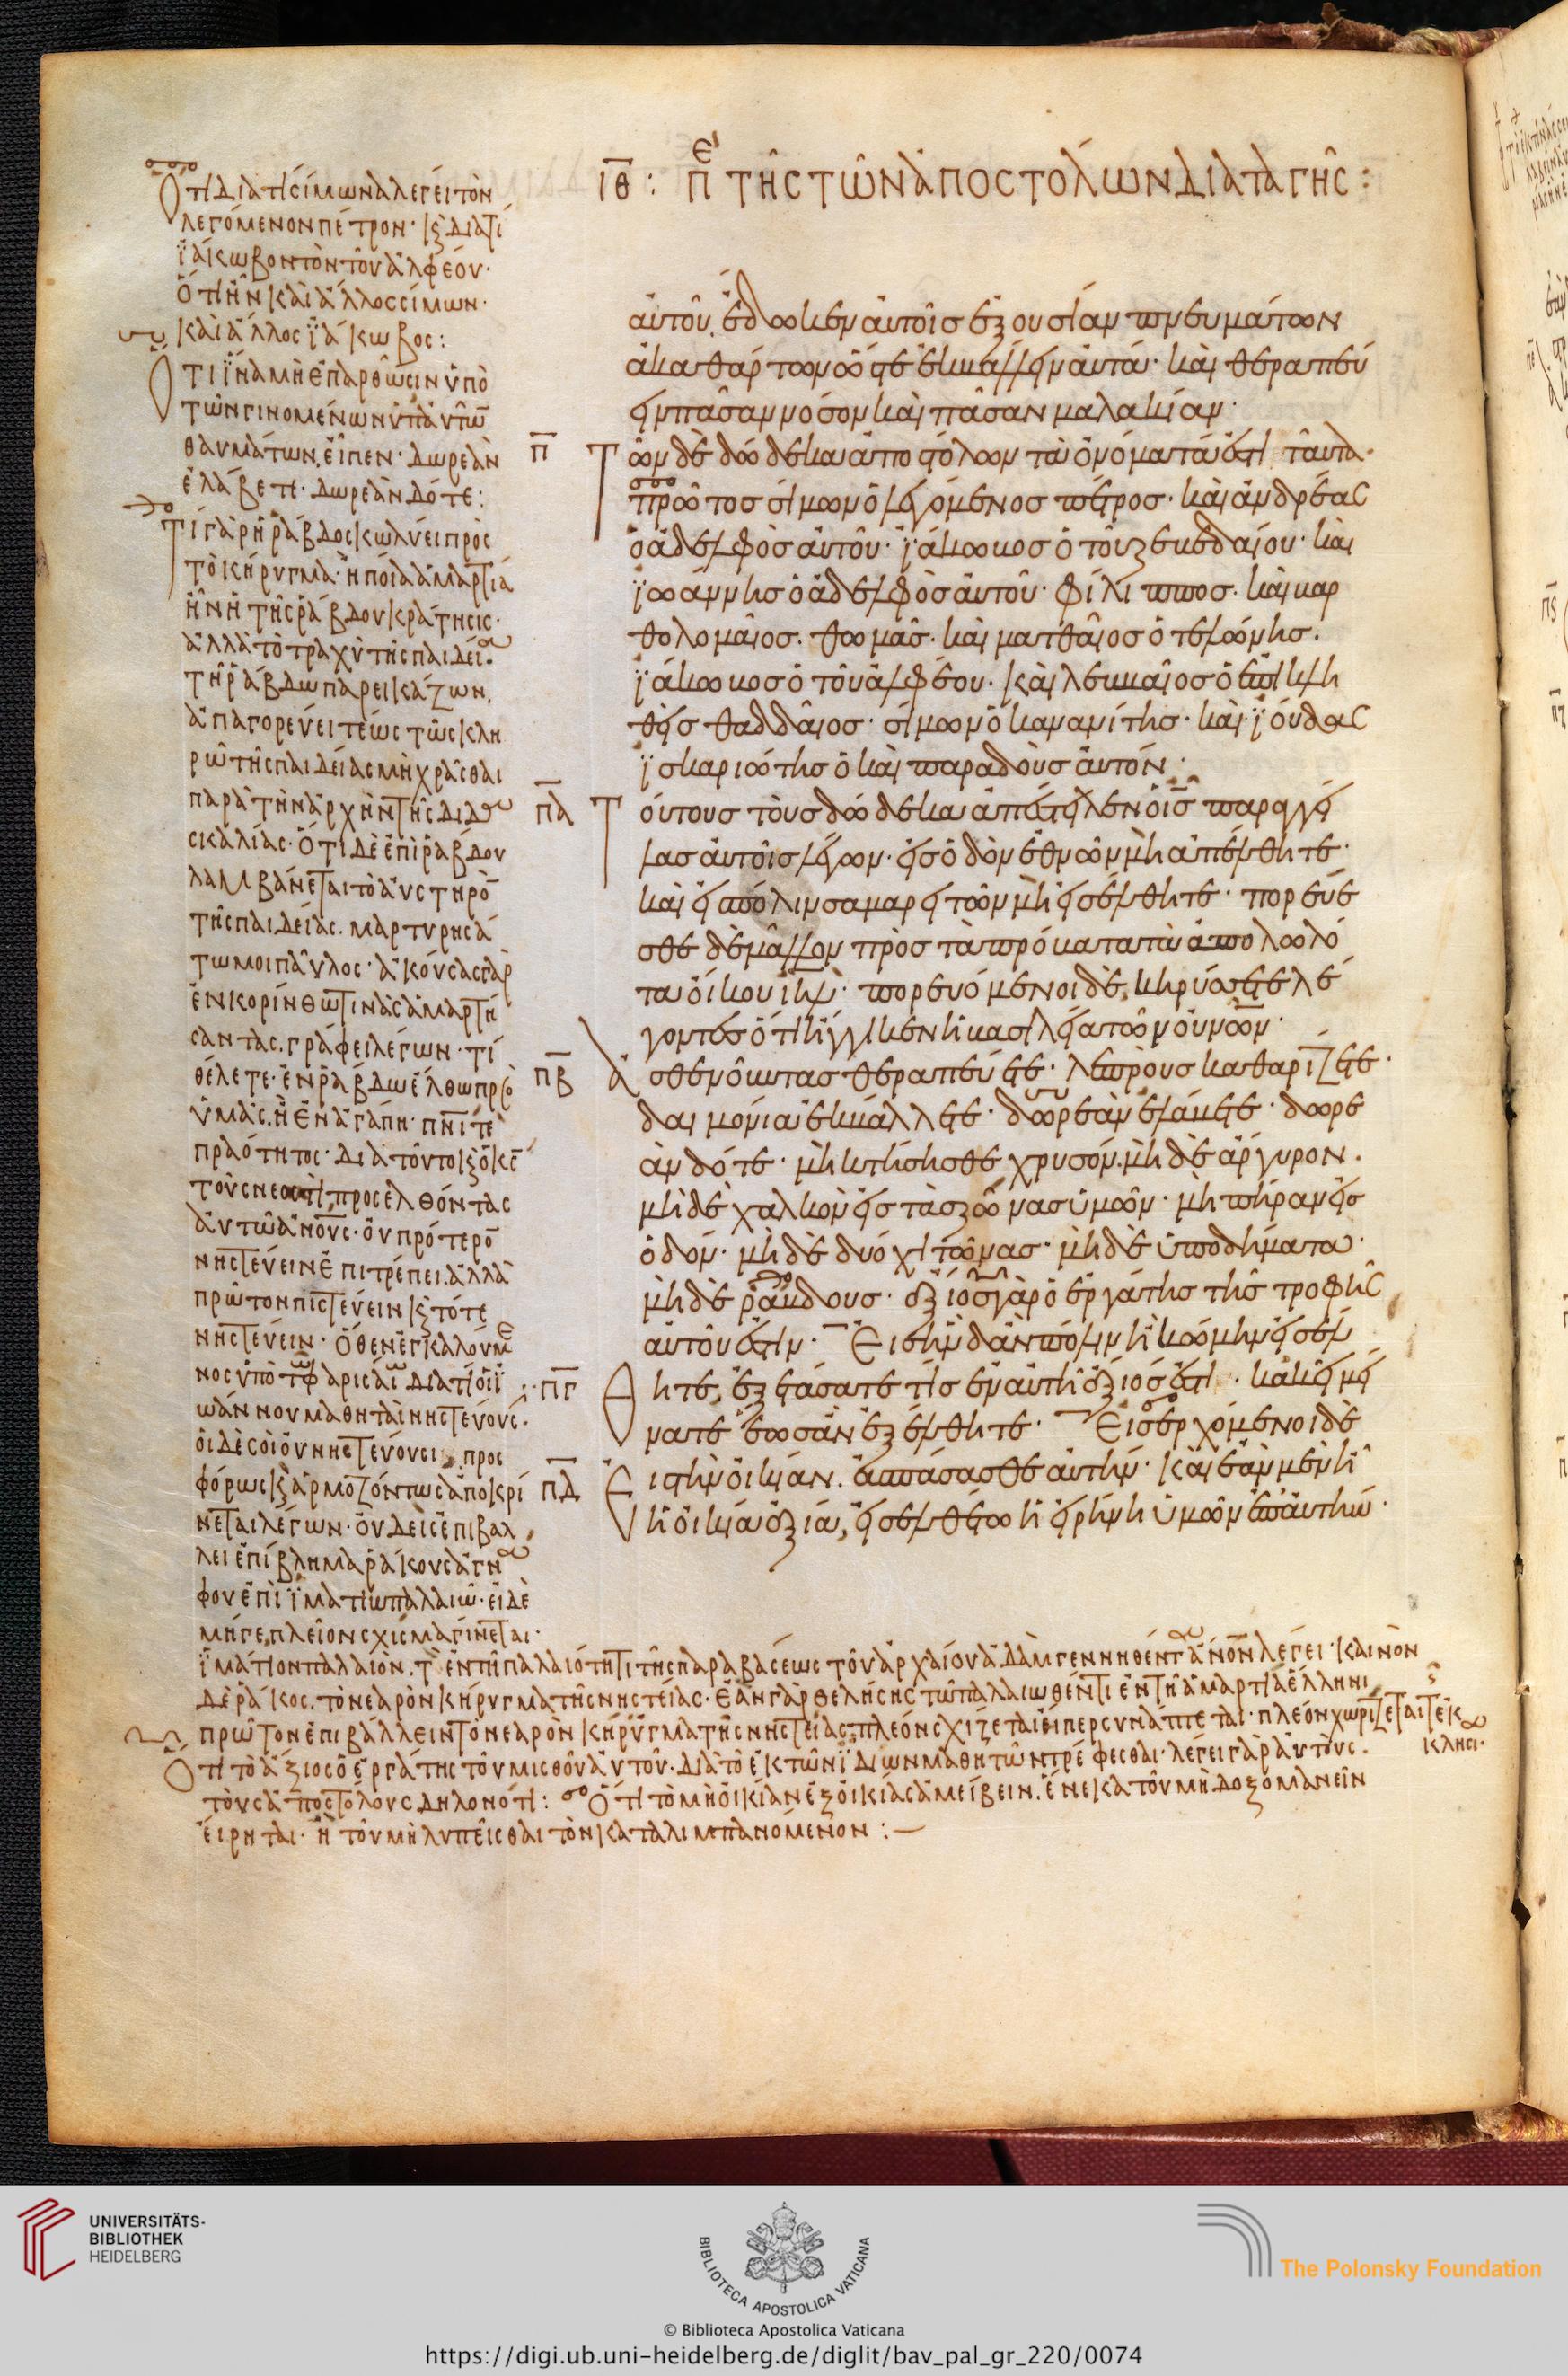 ιθ: πε τῆς τῶν ἀποστόλων διαταγῆς:
αὐτοῦ. ἔδωκεν αὐτοῖς ἐξουσίαν πνευμάτων
ἀκαθάρτων ὥστε ἐκβάλλειν αὐτά· καὶ θεραπεύ
ειν πᾶσαν νόσον καὶ πᾶσαν μαλακίαν·
π Τῶν δὲ δώδεκα ἀποστόλων τὰ ὀνόματά ἐστι ταῦτα·
πρῶτος σίμων ὁ λεγόμενος πέτρος· καὶ ἀνδρέας
ὁ ἀδελφὸς αὐτοῦ· ϊάκωβος ὁ τοῦ ζεβεδαίου· καὶ
ϊωάννης ὁ ἀδελφὸς αὐτοῦ· φίλιππος· καὶ βαρ
θολομαῖος· θωμᾶς· καὶ ματθαῖος ὁ τελώνης.
ϊάκωβος ὁ τοῦ ἀλφέου· καὶ λεββαῖος ὁ ἐπικλη
θεὶς θαδδαῖος· σίμων ὁ κανανίτης· καὶ ϊούδας
ϊσκαριώτης ὁ καὶ παραδοὺς αὐτόν·
πα Τούτους τοὺς δώδεκα ἀπέστειλεν ὁ ις παραγγεί
λας αὐτοῖς λέγων· εἰς ὁδὸν ἐθνῶν μὴ ἀπέλθητε·
καὶ εἰς πόλιν σαμαρειτῶν μὴ εἰσέλθητε· πορεύε
σθε δὲ μᾶλλον πρὸς τὰ πρόβατα τὰ ἀπολωλό
τα οἴκου ιηλ· πορευόμενοι δὲ, κηρύσσετε λέ
γοντες ὅτι ἤγγικεν ἡ βασιλεία τῶν ουνων·
πβ ἀσθενοῦντας θεραπεύετε· λεπροὺς καθαρίζετε·
δαιμόνια ἐκβάλλετε· δωρεὰν ἐλάβετε· δωρε
ὰν δότε· μὴ κτήσησθε χρυσόν. μὴ δὲ ἄργυρον.
μὴ δὲ χαλκὸν εἰς τὰς ζώνας ὑμῶν· μὴ πήραν εἰς
ὁδόν· μὴ δὲ δύο χιτῶνας· μὴ δὲ ὑποδήματα·
μὴ δὲ ῥάβδους· ἄξιος γὰρ ὁ ἐργάτης τῆς τροφῆς
αὐτοῦ ἐστιν· Εἰς ἣν δ' ἂν πόλιν ἢ κώμην εἰσέλ
πγ θητε, ἐξετάσατε τίς ἐν αὐτῇ ἄξιός ἐστι· κἀκεῖ μεί
νατε ἕως ἂν ἐξέλθητε· Εἰσερχόμενοι δὲ
πδ εἰς τὴν οἰκίαν. ἀσπάσασθε αὐτήν· καὶ ἐὰν μὲν ᾖ
ἡ οἰκία ἀξία, εἰσελθέτω ἡ εἰρήνη ὑμῶν ἐπ' αὐτήν·
Ὅτι διατί σίμωνα λέγει τὸν
λεγόμενον πέτρον· κ διατί
ϊάκωβον τὸν τοῦ ἀλφέου·
ὅτι ἦν καὶ ἄλλος σίμων·
καὶ ἄλλος ϊάκωβος:
Ὅτι ϊνα μὴ ἐπαρθῶσιν ὑπὸ
τῶν γινομένων ὑπ' αὐτῶ
θαυμάτων, εἶπεν· δωρεὰν
ἐλάβετε· δωρεὰν δότε:
Τί γὰρ ἡ ῥάβδος κωλύει πρὸς
τὸ κήρυγμα· ἢ ποία ἁμαρτία
ἦν ἡ τῆς ῥάβδου κράτησις·
ἀλλὰ τὸ τραχὺ τῆς παιδεία·
τῇ ῥάβδω παρεικάζων,
ἀπαγορεύει τέως τῶ σκλη
ρῶ τῆς παιδείας μὴ χρᾶσθαι
παρὰ τὴν ἀρχὴν τῆς διδα
σκαλίας· ὅτι δὲ ἐπὶ ῥάβδου
λαμβάνεται τὸ αὐστηρὸ
τῆς παιδείας. μαρτυρησά
τω μοι παῦλος· ἀκούσας γὰρ
ἐν κορίνθω τινὰς ἁμαρτή
σαντας. γράφει λέγων· τί
θέλετε· ἐν ῥάβδω ἔλθω πρὸ
ὑμᾶς. ἢ ἐν ἀγάπη· πνι τε
πραότητος· διατοῦτο κ ὁ κς
τοὺς νεωστὶ προσελθόντας
αὐτῶ ανους· οὐ πρότερο
νηστεύειν ἐπιτρέπει. ἀλλὰ
πρῶτον πιστεύειν κ τότε
νηστεύειν· ὅθεν ἐγκαλούμε
νος ὑπὸ τω φαρισαίω διατί οἱ ϊ
ωάννου μαθηταὶ νηστεύουσι·
οἱ δὲ σοὶ οὐ νηστεύουσι, προς
φόρως κ ἁρμοζόντως ἀποκρί
νεται λέγων· οὐδεὶς ἐπιβάλ
λει ἐπίβλημα ῥάκους ἀγνά
φου ἐπὶ ϊματίω παλαιῶ· εἰ δὲ
μήγε, πλεῖον σχίσμα γίνεται·
ϊμάτιον παλαιὸν. τ ἐν τῆ παλαιότητι τῆς παραβάσεως τοῦ ἀρχαίου ἀδὰμ γεννηθέντα ανον λέγει· καινὸν
δὲ ῥάκος. τὸ νεαρὸν κήρυγμα τῆς νηστείας· ἐὰν γὰρ θελήσης τῶ παλαιωθέντι ἐν τῆ ἁμαρτία ἕλληνι
πρῶτον ἐπιβάλλειν τὸ νεαρὸν κήρυγμα τῆς νηστείας πλέον σχίζεται εἴπερ συνάπτεται· πλέον χωρίζεται τ ἐκ
κλησι·
Ὅτι τὸ ἄξιος ὁ ἐργάτης τοῦ μισθοῦ αὐτοῦ· διὰ τὸ ἐκ τῶν ϊδίων μαθητῶν τρέφεσθαι· λέγει γὰρ αὐτοὺς·
τοὺς ἀποστόλους δηλονότι: Ὅτι τὸ μὴ οἰκίαν ἐξ οἰκίας ἀμείβειν. ἕνεκα τοῦ μὴ δοξομανεῖν
εἴρηται· ἢ τοῦ μὴ λυπεῖσθαι τὸν καταλιμπανόμενον :—
UNIVERSITÄTS-
BIBLIOTHEK
HEIDELBERG
BIBLIOTECA APOSTOLICA VATICANA
The Polonsky Foundation
© Biblioteca Apostolica Vaticana
https://digi.ub.uni-heidelberg.de/diglit/bav_pal_gr_220/0074